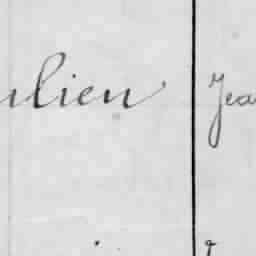 ulien Jea